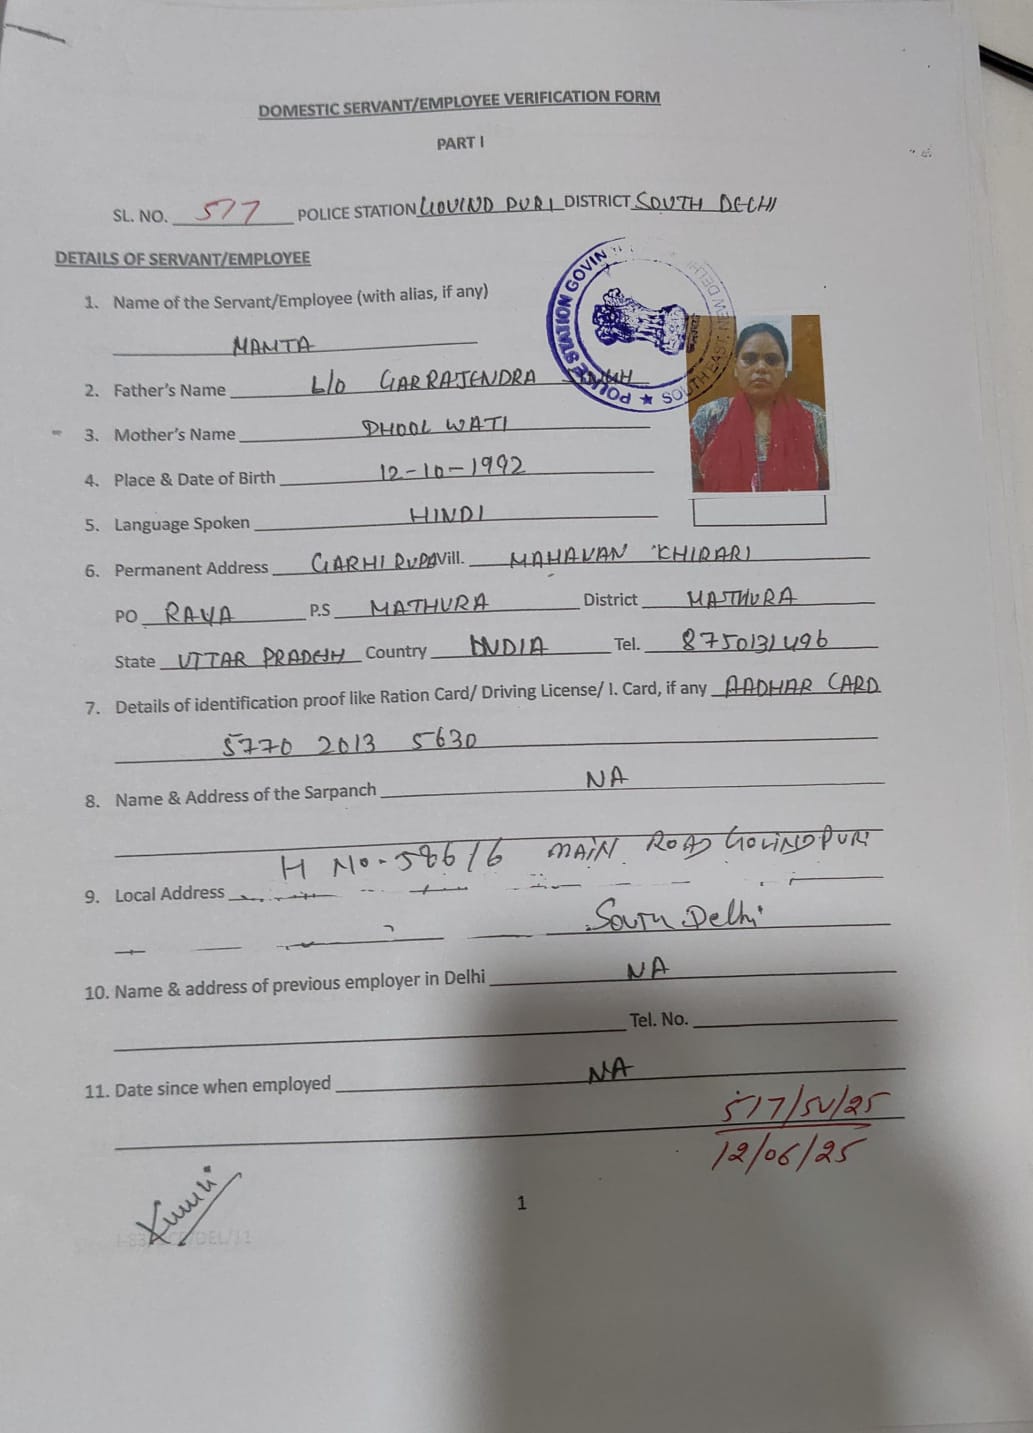 DOMESTIC SERVANT/EMPLOYEE VERIFICATION FORM
PART I
SL. NO. 517 POLICE STATION GOVIND PURI DISTRICT SOUTH DELHI
DETAILS OF SERVANT/EMPLOYEE
POLICE STATION GOVIN
SOUTH EAST, NEW DELHI
1. Name of the Servant/Employee (with alias, if any)
MAMTA
2. Father's Name GARRAJENDRA SINGH
3. Mother's Name PHOOL WATI
4. Place & Date of Birth 12-10-1992
5. Language Spoken HINDI
6. Permanent Address GARHI RUPA Vill. MAHAVAN KHIRARI
PO RAYA P.S MATHURA District MATHURA
State UTTAR PRADESH Country INDIA Tel. 8750131496
7. Details of identification proof like Ration Card/ Driving License/ I. Card, if any AADHAR CARD
5770 2013 5630
8. Name & Address of the Sarpanch NA
H NO-586/6 MAIN ROAD GOVINDPURI
9. Local Address
South Delhi
10. Name & address of previous employer in Delhi NA
Tel. No.
11. Date since when employed NA
517/SV/25
12/06/25
1